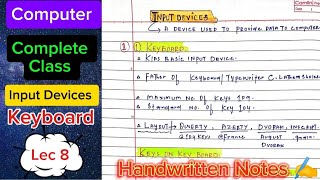 Computer
Complete
Class
Input Devices
Keyboard
Lec 8
INPUT DEVICES
A DEVICE USED TO PROVIDE DATA TO COMPUTER
① KEYBOARD
BASIC INPUT DEVICE
FATHER OF KEYBOARD/TYPEWRITER C.
MAXIMUM NO. OF KEYS 109.
STANDARD NO. OF KEY 104.
LAYOUT → QWERTY, AZERTY, DVORAK,
AUGUST
DVORAK
KEYS ON KEY BOARD
Handwritten Notes ✍